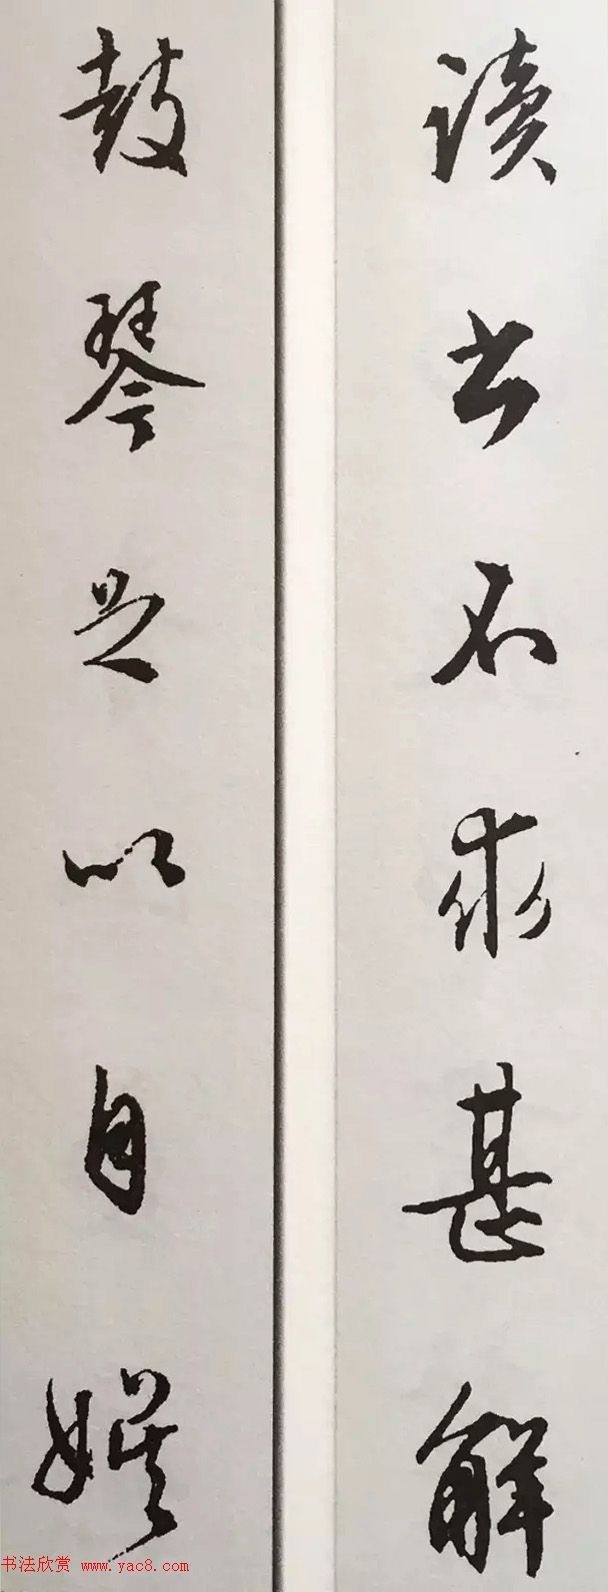 讀書不求甚解
鼓琴足以自娱
书法欣赏 www.yac8.com